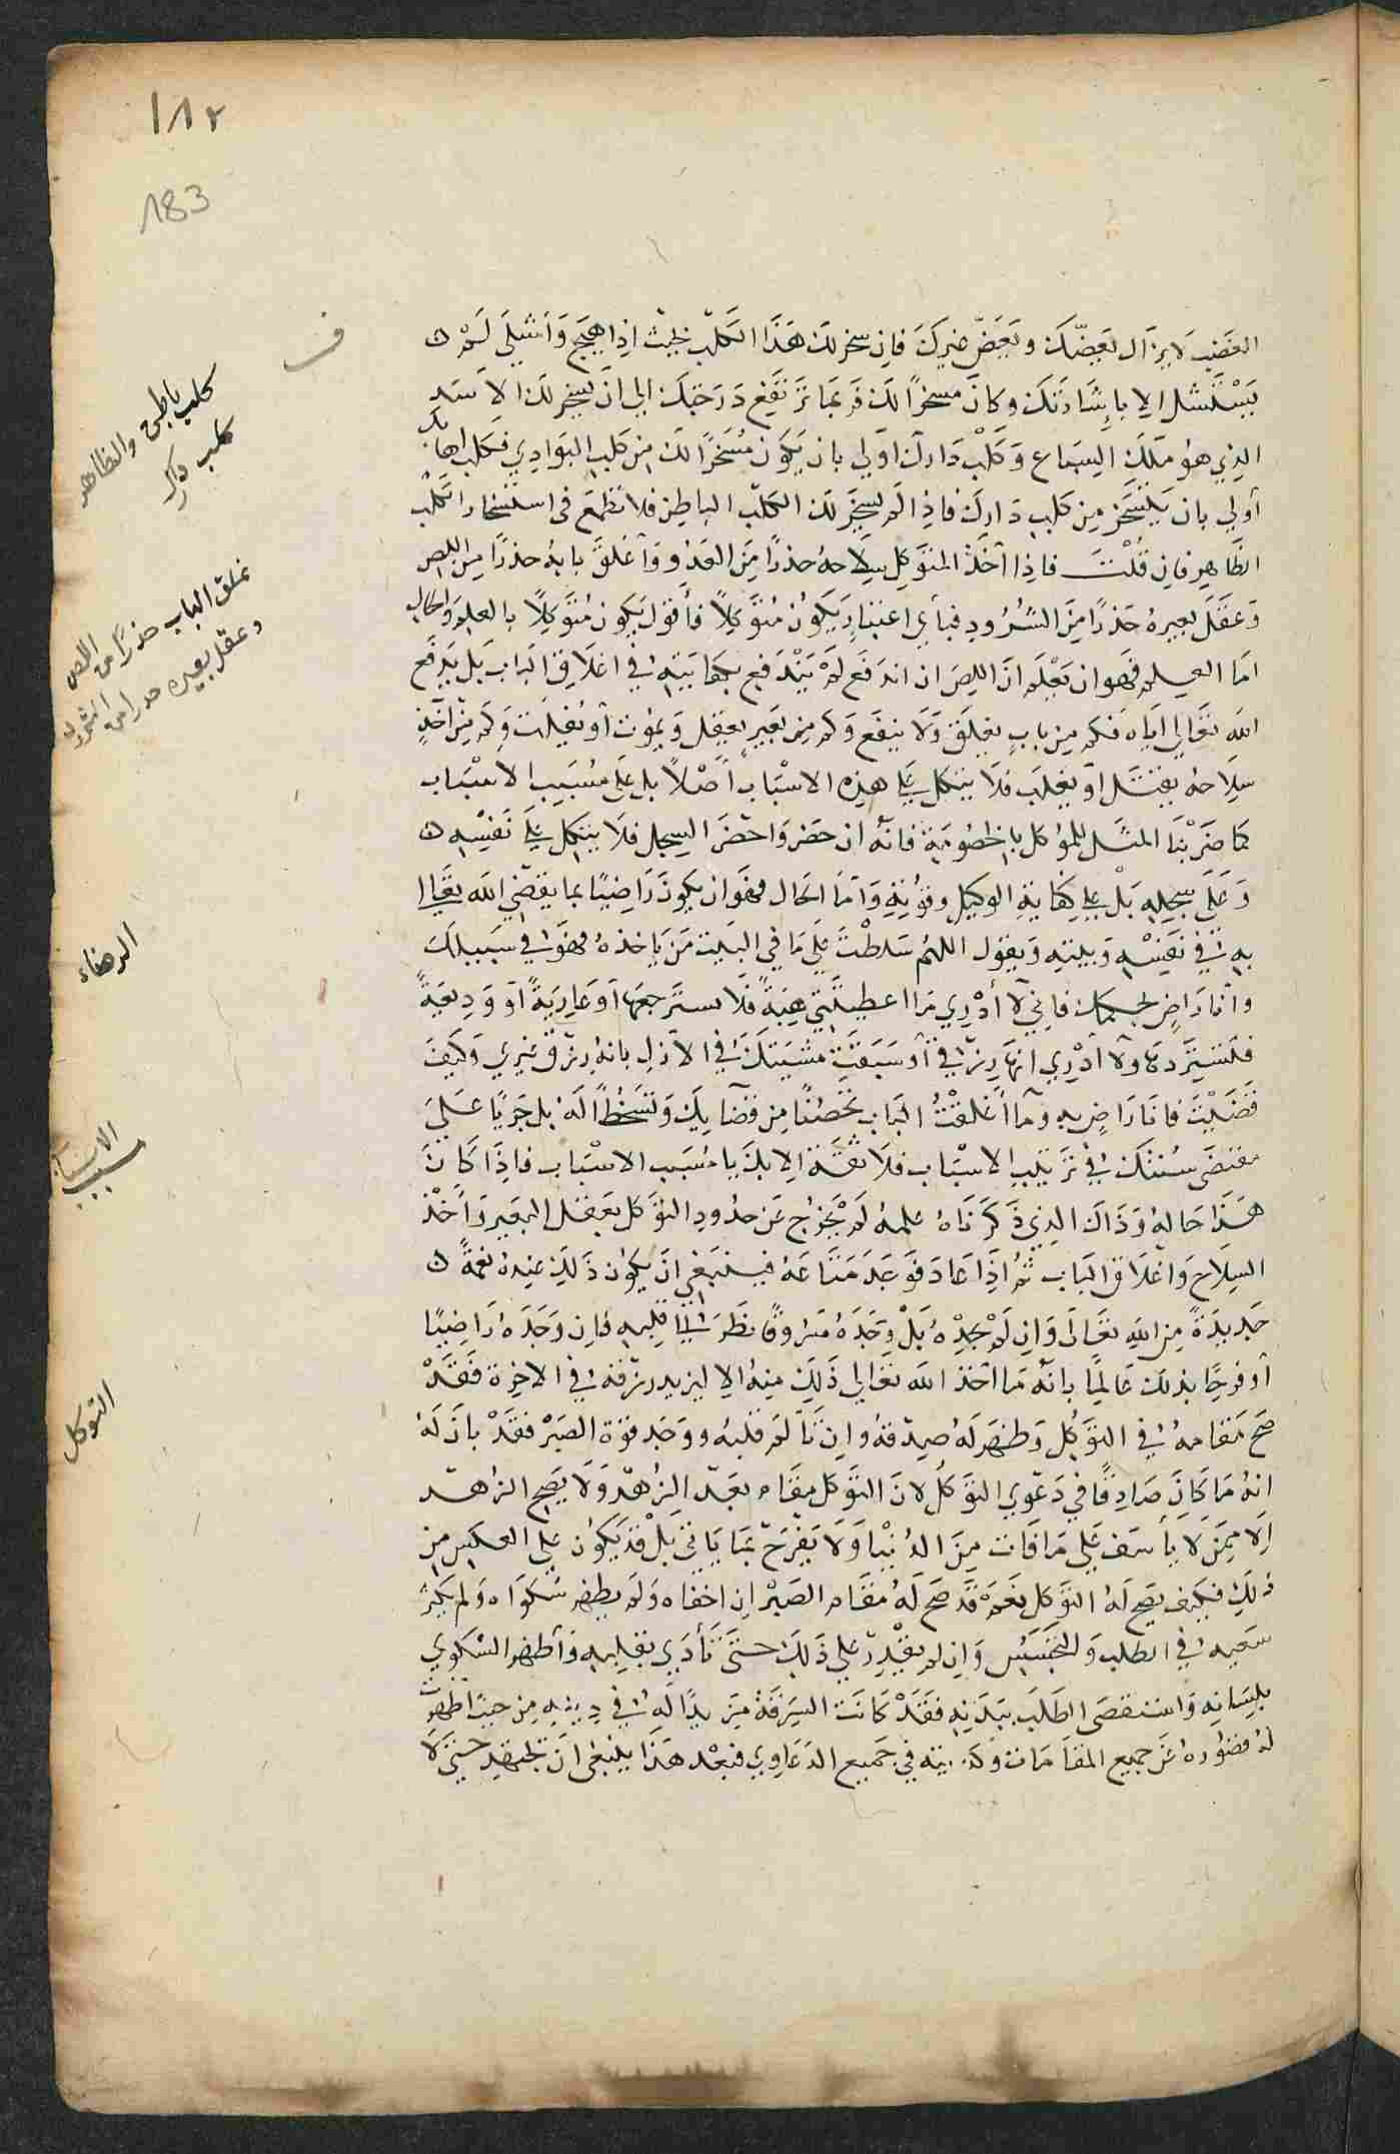 ١٨٢
183
الغضب لا يزال يعضّك ويعضّ غيرك فان سخر لك هذا الكلب بحيث اذا هيج واشلي لم
يستشل الا باشارتك وكان مسخرا لك فربما ترتفع درجتك الى ان يسخر لك الاسد
الذي هو ملك السباع وكلب دارك اولى بان يكون مسخرا لك من كلب البوادي وكلب اهابك
أولى بان يتسخر من كلب دارك فاذا لم يسخر لك الكلب الباطن فلا تطمع فى استسخار الكلب
الظاهر فان قلت فاذا أخذ المتوكل سلاحه حذرا من العدو وأغلق بابه حذرا من اللص
وعقل بعيره حذرا من الشرود فبأي اعتبار يكون متوكلا فأقول يكون متوكلا بالعلم والحال
اما العلم فهو ان يعلم ان اللص ان اندفع لم يندفع بكفايته في اغلاق الباب بل بدفع
الله تعالى اياه فكم من باب يغلق ولا ينفع وكم من بعير يعقل ويموت أو يفلت وكم من آخذ
سلاحه يقتل أو يغلب فلا يتكل على هذه الاسباب أصلا بل على مسبب الاسباب
كما ضربنا المثل للموكل بالخصومة فانه ان حضر واحضر السجل فلا يتكل على نفسه
وعلى سجله بل على كفاية الوكيل وقوته وأما الحال فهو ان يكون راضيا بما يقضي الله تعالى
به في نفسه وبيته ويقول اللهم سلطت على ما في البيت من يأخذه فهو في سبيلك
وأنا راض لحكمك فاني لا أدري ما اعطيتني هبة فلا تسترجعها أو عارية أو وديعة
فتستردها ولا أدري انها رزقي أو سبقت مشيتك في الازل بانه رزق غيري وكيف
قضيت فانا راض به وما أغلقت الباب تحصنا من قضايك وتسخطا له بل جريا على
مقتضى سنتك في ترتيب الاسباب فلا ثقة الا بك يا مسبب الاسباب فاذا كان
هذا حاله وذاك الذي ذكرناه علمه لم يخرج عن حدود التوكل بعقل البعير وأخذ
السلاح واغلاق الباب ثم اذا عاد فوجد متاعه فينبغي ان يكون ذلك عنده نعمة
جديدة من الله تعالى وان لم يجده بل وجده مسروقا نظر الى قلبه فان وجده راضيا
أو فرحا بذلك عالما بانه ما اخذ الله تعالى ذلك منه الا ليزيد رزقه في الاخرة فقد
صح مقامه في التوكل وظهر له صدقه وان تألم قلبه ووجد قوة الصبر فقد بان له
انه ما كان صادقا في دعوى التوكل لان التوكل مقام بعد الزهد ولا يصح الزهد
الا ممن لا يأسف على ما فات من الدنيا ولا يفرح بما ياتي بل قد يكون على العكس من
ذلك فكيف يصح له التوكل نعم قد صح له مقام الصبر ان اخفاه ولم يظهر شكواه ولم يكثر
سعيه في الطلب والتجسس وان لم يقدر على ذلك حتى تأذي بقلبه وأظهر الشكوي
بلسانه واستقصى الطلب ببدنه فقد كانت السرقة مزيدا له في دينه من حيث اظهرت
له قصوره عن جميع المقامات وكذبته في جميع الدعاوي فبعد هذا ينبغى ان يجتهد حتى لا
ف
كلب باطن والظاهر
كلب دارك
غلق الباب حذرا من اللص
وعقل بعيره حذرا من الشرود
الرضاء
الاسباب
مسبب
التوكل